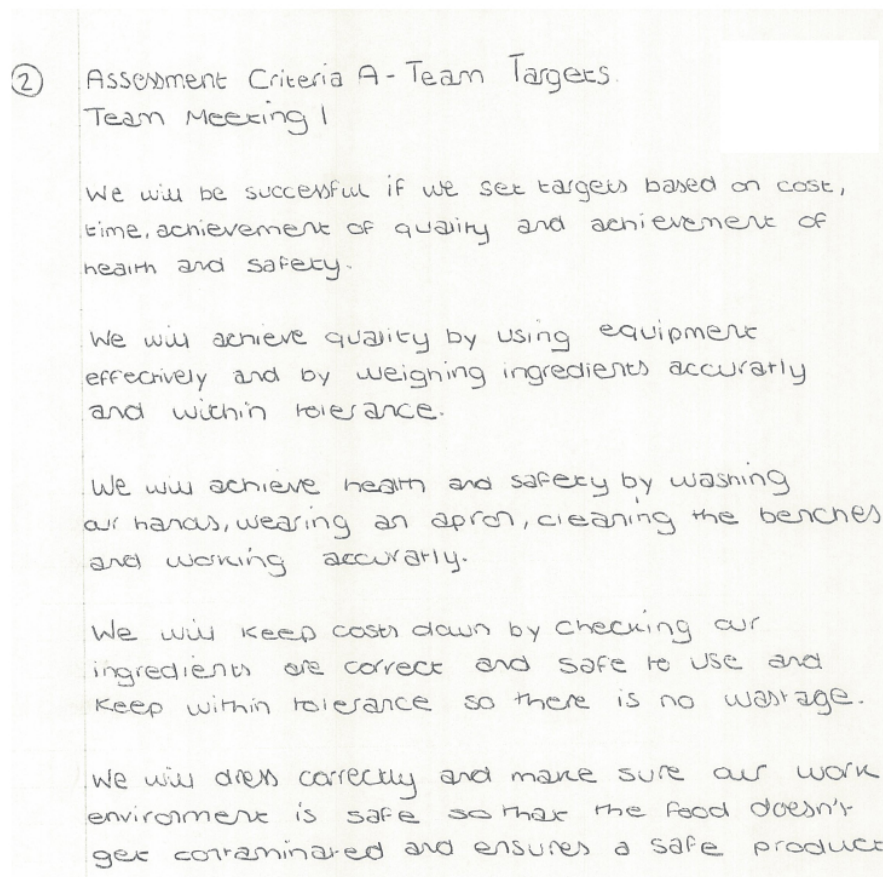 2 Assessment Criteria A - Team Targets.
Team Meeting 1
We will be successful if we set targets based on cost,
time, achievement of quality and achievement of
health and safety.
We will achieve quality by using equipment
effectively and by weighing ingredients accuratly
and within tolerance.
We will achieve health and safety by washing
our hands, wearing an apron, cleaning the benches
and working accuratly.
We will keep costs down by checking our
ingredients are correct and safe to use and
keep within tolerance so there is no wastage.
We will dress correctly and make sure our work
environment is safe so that the food doesn't
get contaminated and ensures a safe product